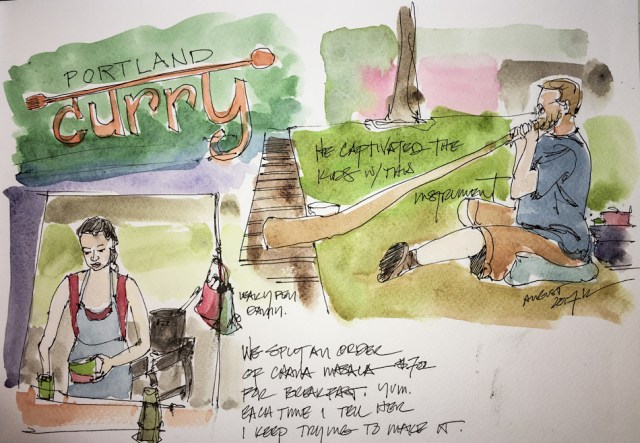 PORTLAND
curry
HE CAPTIVATED THE
KIDS W/ THIS
INSTRUMENT
AUGUST
2017
LEAKY PEN
WE SPLIT AN ORDER
OF CHANA MASALA $7
FOR BREAKFAST. YUM.
EACH TIME I TELL HER
I KEEP TRYING TO MAKE IT.